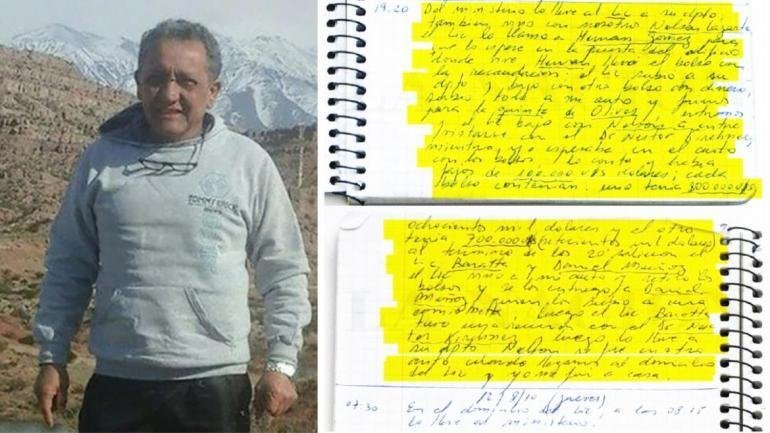 TOMMY BRICK
19.20 Del ministerio lo lleve al Lic a su dpto,
tambien vino con nosotro Nelson Lazarte
el Lic lo llamo a Hernan Gomez para
que lo espere en la puerta del edificio
donde vive Hernan llevó el bolso con
la recaudacion; el Lic subio a su
dpto y bajo con otro bolso con dinero,
subio todo a mi auto y fuimos
para la quinta de Olivos, entramos
el Lic bajo con Nelson a entre
vistarse con el Dr Nestor Kirchner,
mientras yo esperaba en el auto
con los bolsos, lo conte y habia
fajos de 100.000 U$S dolares; cada
bolso contenian: uno tenia 800.000 U$S
ochocientos mil dolares y el otro
tenia 700.000 U$S setecientos mil dolares
al termino de los 20' salieron el
Lic Baratta y Daniel Muñoz
el Lic vino a mi auto y los
bolsos y se los entrego a Daniel
Muñoz, quien los subio a una
camioneta. Luego el Lic Baratta
tuvo una reunion con el Dr Nes
tor Kirchner y luego lo lleve a
su dpto Nelson se fue en otro
auto cuando llegamos al domicilio
del Lic y yo me fui a casa.
12/8/10 (jueves)
07:30 En el domicilio del Lic; a las 08.15
lo lleve al ministerio.